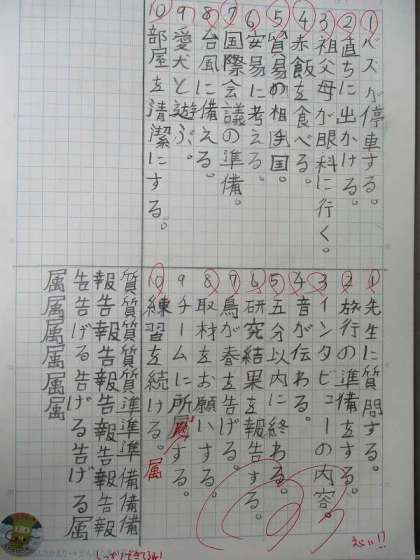 ①バスが停車する。
②直ちに出かける。
③祖父母が眼科に行く。
④赤飯を食べる。
⑤貿易の相手国。
⑥安易に考える。
⑦国際会議の準備。
⑧台風に備える。
⑨愛犬と遊ぶ。
⑩部屋を清潔にする。
①先生に質問する。
②旅行の準備をする。
③インタビューの内容。
④音が伝わる。
⑤五分以内に終わる。
⑥研究結果を報告する。
⑦鳥が春を告げる。
⑧取材をお願いする。
9チームに所属する。
⑩練習を続ける。
属
質質質質準準準備備備
報告報告報告報告報告
告げる告げる告げる
属属属属属属属